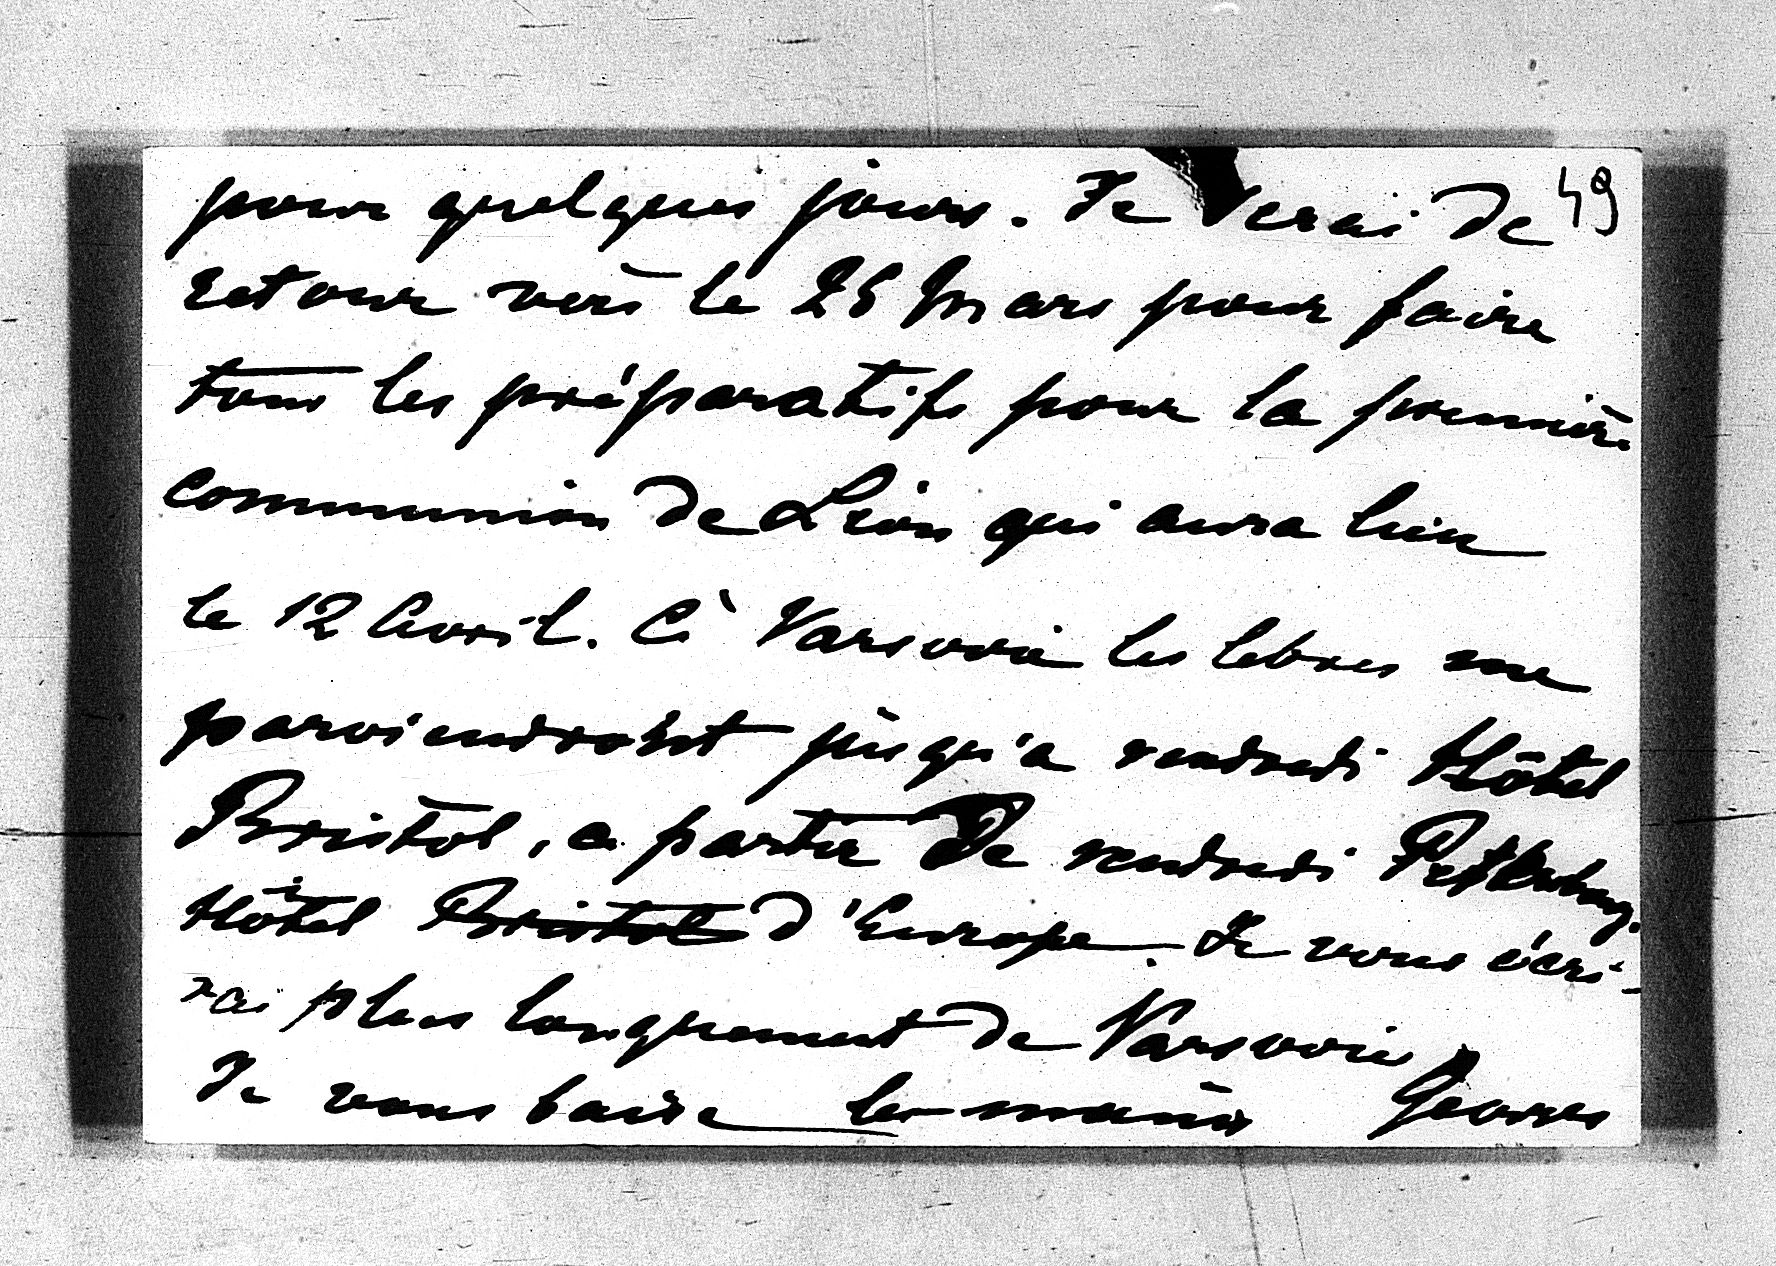 pour quelques jours. Je serai de 49
retour vers le 25 Mars pour faire
tous les préparatifs pour la première
communion de Léon qui aura lieu
le 12 Avril. à Varsovie les lettres me
parviendront jusqu'a vendredi Hôtel
Bristol, a partir de vendredi Petersburg.
Hôtel Bristol d'Europe. Je vous écri-
rai plus longuement de Varsovie
Je vous baise les mains Georges